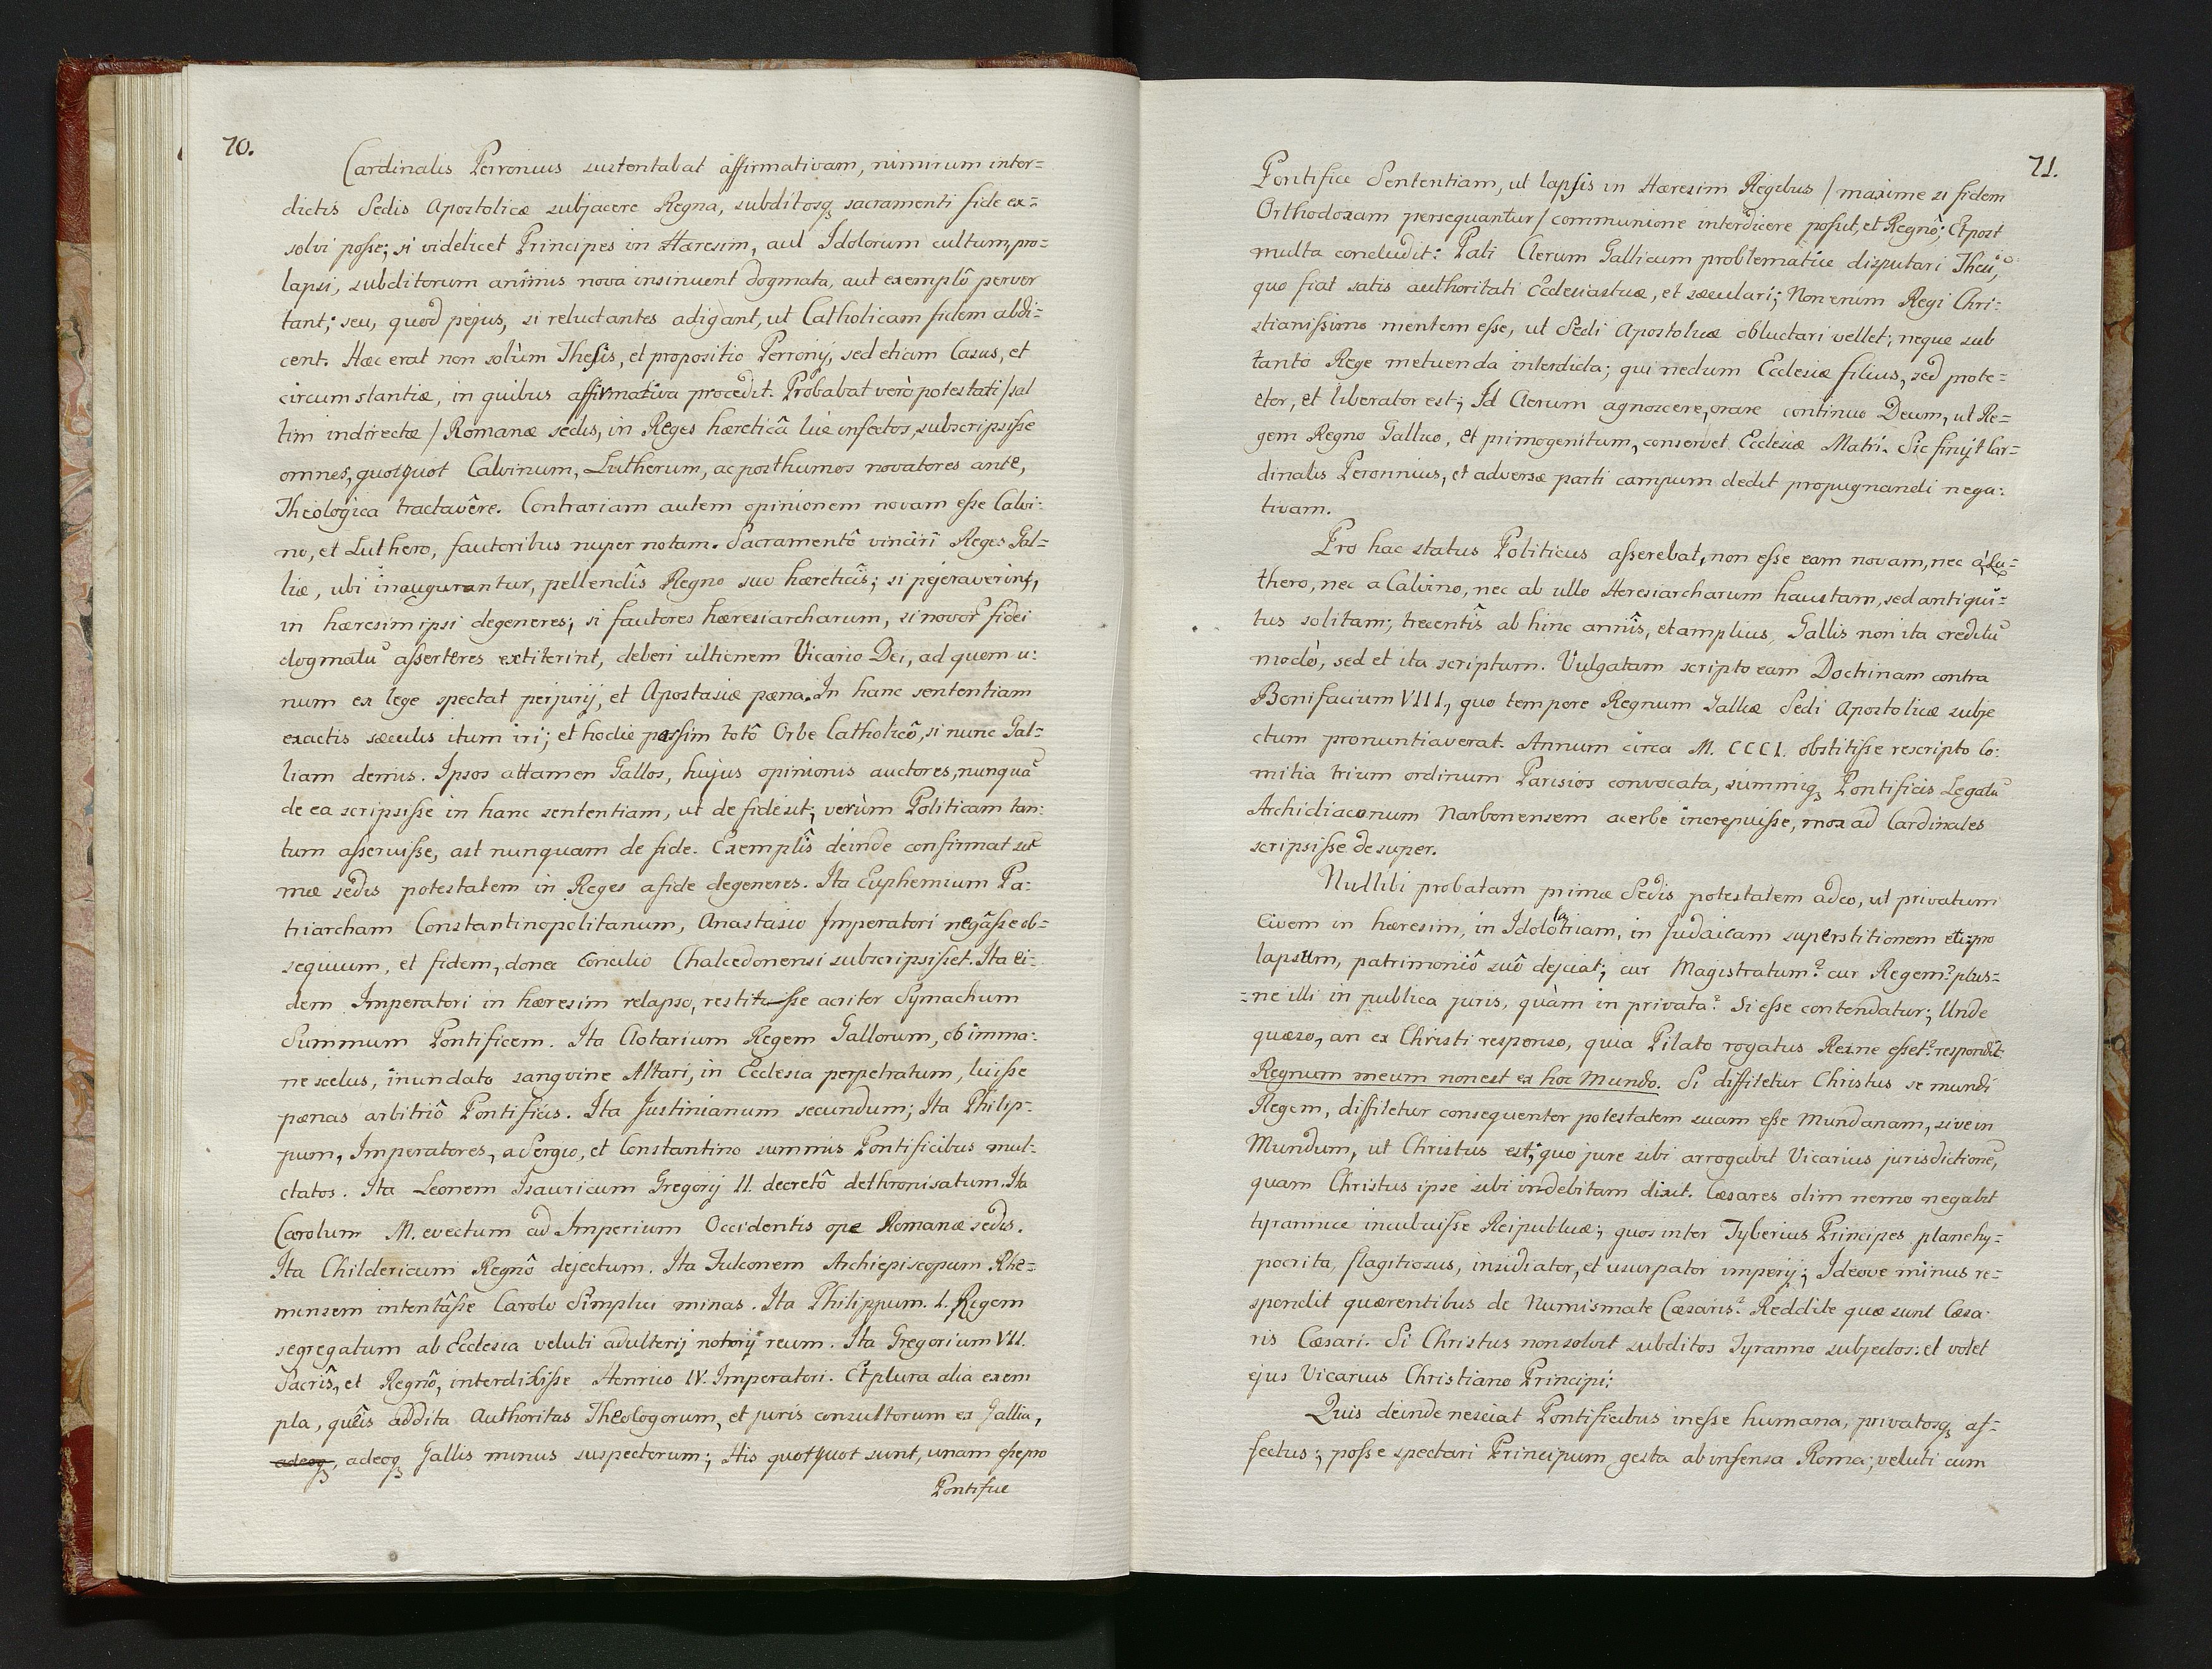 70.
Cardinalis Perronius sustentabat affirmativam, nimirum inter=
dictis Sedis Apostolicæ subjacere Regna, subditosq; sacramenti fide ex=
solvi posse; si videlicet Principes in Hæresim, aut Idolorum cultum, pro=
lapsi, subditorum animis nova insinuent dogmata, aut exemplô perver
tant; seu, quod pejus, si reluctantes adigant, ut Catholicam fidem abdi=
cent. Hæc erat non solùm Thesis, et propositio Perronij, sed etiam Casus, et
circumstantiæ, in quibus affirmativa procedit. Probabat verò potestati /sal
tim indirectæ/ Romanæ sedis, in Reges hæreticâ lue infectos, subscripsisse
omnes, quotquot Calvinum, Lutherum, ac posthumos novatores ante,
Theologica tractavêre. Contrariam autem opinionem novam esse Calvi=
no, et Luthero, fautoribus nuper notam. Sacramentô vinciri Reges Gal=
liæ, ubi inaugurantur, pellendîs Regno suo hæreticîs; si pejeraverint,
in hæresim ipsi degeneres; si fautores hæresiarcharum, si novor̃ fidei
dogmatũ assertores extiterint, deberi ultionem Vicario Dei, ad quem u=
num ex lege spectat perjurij, et Apostasiæ pæna. In hanc sententiam
exactis sæculis itum iri; et hodie passim totô Orbe Catholicô, si nunc Gal=
liam demis. Ipsos attamen Gallos, hujus opinionis auctores, nunquã
de ea scripsisse in hanc sententiam, ut de fide sit; verùm Politicam tan=
tum asseruisse, ast nunquam de fide. Exemplîs deinde confirmat sũ
mæ sedis potestatem in Reges a fide degeneres. Ita Euphemium Pa=
triarcham Constantinopolitanum, Anastasio Imperatori negâsse ob=
sequium, et fidem, donec Concilio Chalcedonensi subscripsisset. Ita ei=
dem Imperatori in hæresim relapso, restitisse acriter Symachum
Summum Pontificem. Ita Clotarium Regem Gallorum, ob imma=
ne scelus, inundato sanguine Altari, in Ecclesia perpetratum, luisse
pænas arbitriô Pontificis. Ita Justinianum secundum; Ita Philip=
pum, Imperatores, a Sergio, et Constantino summis Pontificibus mul=
ctatos. Ita Leonem Isauricum Gregorij II. decretô dethronisatum. Ita
Carolum M. evectum ad Imperium Occidentis ope Romanæ sedis.
Ita Childericum Regnô dejectum. Ita Fulconem Archiepiscopum Rhe=
mensem intentâsse Carolo Simplici minas. Ita Philippum. I. Regem
segregatum ab Ecclesia veluti adulterij notorij reum. Ita Gregorium VII.
Sacrîs, et Regnô, interdixisse Henrico IV. Imperatori. Et plura alia exem
pla, quêis addita Authoritas Theologorum, et juris consultorum ex Gallia,
adeoq;, adeoq; Gallis minus suspectorum; His quotquot sunt, unam esse pro
Pontifice
71.
Pontifice Sententiam, ut lapsis in Hæresim Regibus /maxime si fidem
Orthodoxam persequantur/ communione interdicere possit, et Regnô; Et post
multa concludit: Pati Clerum Gallicum problematice disputari Thesi,
quo fiat satis authoritati Ecclesiasticæ, et sæculari; Non enim Regi Chri=
stianissimo mentem esse, ut Sedi Apostolicæ obluctari vellet; neque sub
tanto Rege metuenda interdicta; qui nedum Ecclesiæ filius, sed prote=
ctor, et liberator est; Id Clerum agnoscere, orare continuo Deum, ut Re=
gem Regno Gallico, et primogenitum, conservet Ecclesiæ Matri. Sic finijt Car=
dinalis Peronnius, et adversæ parti campum dedit propugnandi nega=
tivam.
Pro hac status Politicus asserebat, non esse eam novam, nec à Lu=
thero, nec a Calvino, nec ab ullo Heresiarcharum haustam, sed antiqui=
tus solitam; trecentîs ab hinc annîs, et amplius, Gallis non ita creditũ
modò, sed et ita scriptum. Vulgatam scripto eam Doctrinam contra
Bonifacium VIII, quo tempore Regnum Galliæ Sedi Apostolicæ subje
ctum pronuntiaverat. Annum circa M. CCCI. obstitisse rescripto Co=
mitia trium ordinum Parisios convocata, summiq; Pontificis Legatũ
Archidiaconum Narbonensem acerbe increpuisse, mox ad Cardinales
scripsisse desuper.
Nullibi probatam primæ Sedis potestatem adeo, ut privatum
Civem in hæresim, in Idololatriam, in Judaicam superstitionem etc: pro
lapsum, patrimoniô suô dejiciat; cur Magistratum? cur Regem? plus=
=ne illi in publica juris, quàm in privata? Si esse contendatur; Unde
quæso, an ex Christi responso, quia Pilato rogatus Rexne esset? respondit
Regnum meum non est ex hoc Mundo. Si diffitetur Christus se mundi
Regem, diffitetur consequenter potestatem suam esse Mundanam, sive in
Mundum, ut Christus est; quo jure sibi arrogabit Vicarius jurisdictionẽ,
quam Christus ipse sibi indebitam dixit. Cæsares olim nemo negabit
tyrannice incubuisse Reipublicæ; quos inter Tyberius Principes plane hy=
pocrita, flagitiosus, insidiator, et usurpator imperij; Ideove minus re=
spondit quærentibus de Numismate Cæsaris? Reddite quæ sunt Cæsa=
ris Cæsari. Si Christus non solvit subditos Tyranno subjectos: et volet
ejus Vicarius Christiano Principi;
Quis deinde nesciat Pontificibus inesse humana, privatosq; af=
fectus; posse spectari Principum gesta ab infensa Roma; veluti cum